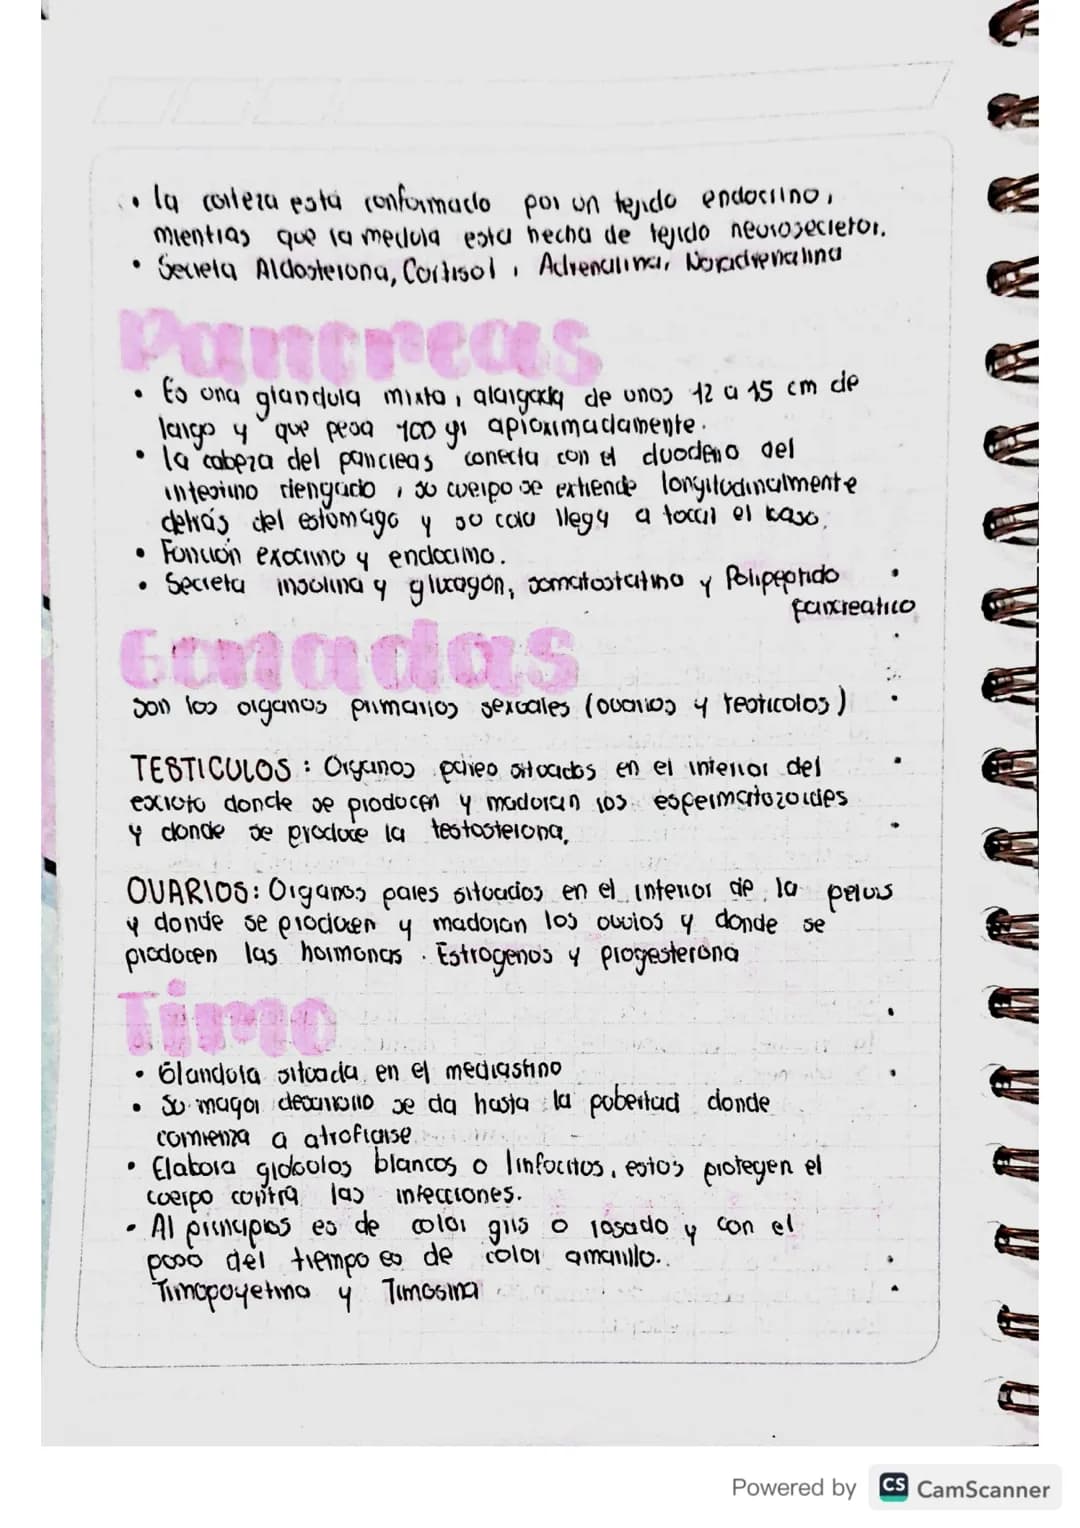 • la corteza está conformado por un tejido endocrino,
mientras que la medula esta hecha de tejido neurosecretor.
• Secreta Aldosterona, Cortisol, Adrenalina, Noradrenalina
Pancreas
• Es una glandula mixta, alargada de unos 12 a 15 cm de
largo y que pesa 100 gr aproximadamente.
• la cabeza del pancreas conecta con el duodeno del
intestino delgado, su cuerpo se extiende longitudinalmente
detrás del estomago y su cola llega a tocar el baso.
• Función exocrino y endocrino.
• Secreta insulina y glucagón, somatostatina y Polipeptido
pancreatico
Gonadas
Son los organos primarios sexuales (ovarios y testiculos)
TESTICULOS: Organos pares situados en el interior del
escroto donde se producen y maduran los espermatozoides
y donde se produce la testosterona,
OVARIOS: Organos pares situados en el interior de la pelvis
y donde se producen y maduran los ovulos y donde se
producen las hormonas. Estrogenos y progesterona
Timo
• Glandula situada en el mediastino
• Su mayor desarrollo se da hasta la pubertad donde
comienza a atrofiarse
• Elabora globulos blancos o linfocitos, estos protegen el
cuerpo contra las infecciones.
• Al principios es de color gris o rosado y con el
paso del tiempo es de color amarillo.
Timopoyetina y Timosina
Powered by CS CamScanner